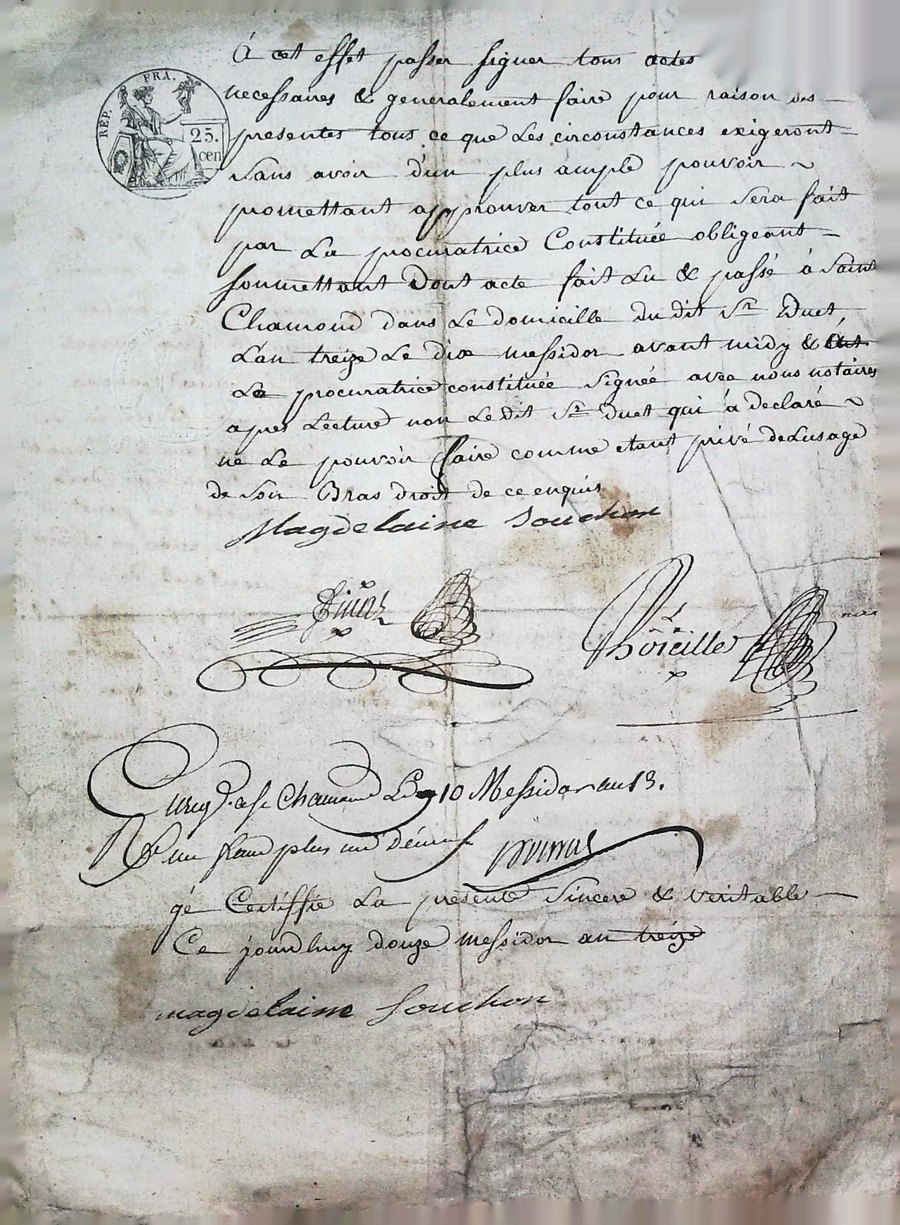 REP. FRA.
25.
cen
À cet effet passer signer tous actes
necessaires & generalement faire pour raison des
presentes tous ce que Les circonstances exigeront
Sans avoir d'un plus ample pouvoir ~
promettant approuver tout ce qui Sera fait
par La procuratrice Constituée obligeant
Soumettant Dont acte fait Lu & passé à Saint
Chamond dans Le domicille du dit Sr. Duet,
L'an treize Le dix messidor avant midy &
La procuratrice constituée Signée avec nous notaires
apres Lecture non Le dit Sr. Duet qui à declaré ~
ne Le pouvoir faire comme etant privé de Lusage
de Son Bras droit de ce enquis
Magdelaine Souchon
finas
Thoreille
nre
Enregt. a St. Chamond Le 10 Messidor an 13.
un franc plus un décime
gé Certiffie La presente Sincere & veritable
Ce jourdhuy douze messidor an treize
magdelaine Souchon